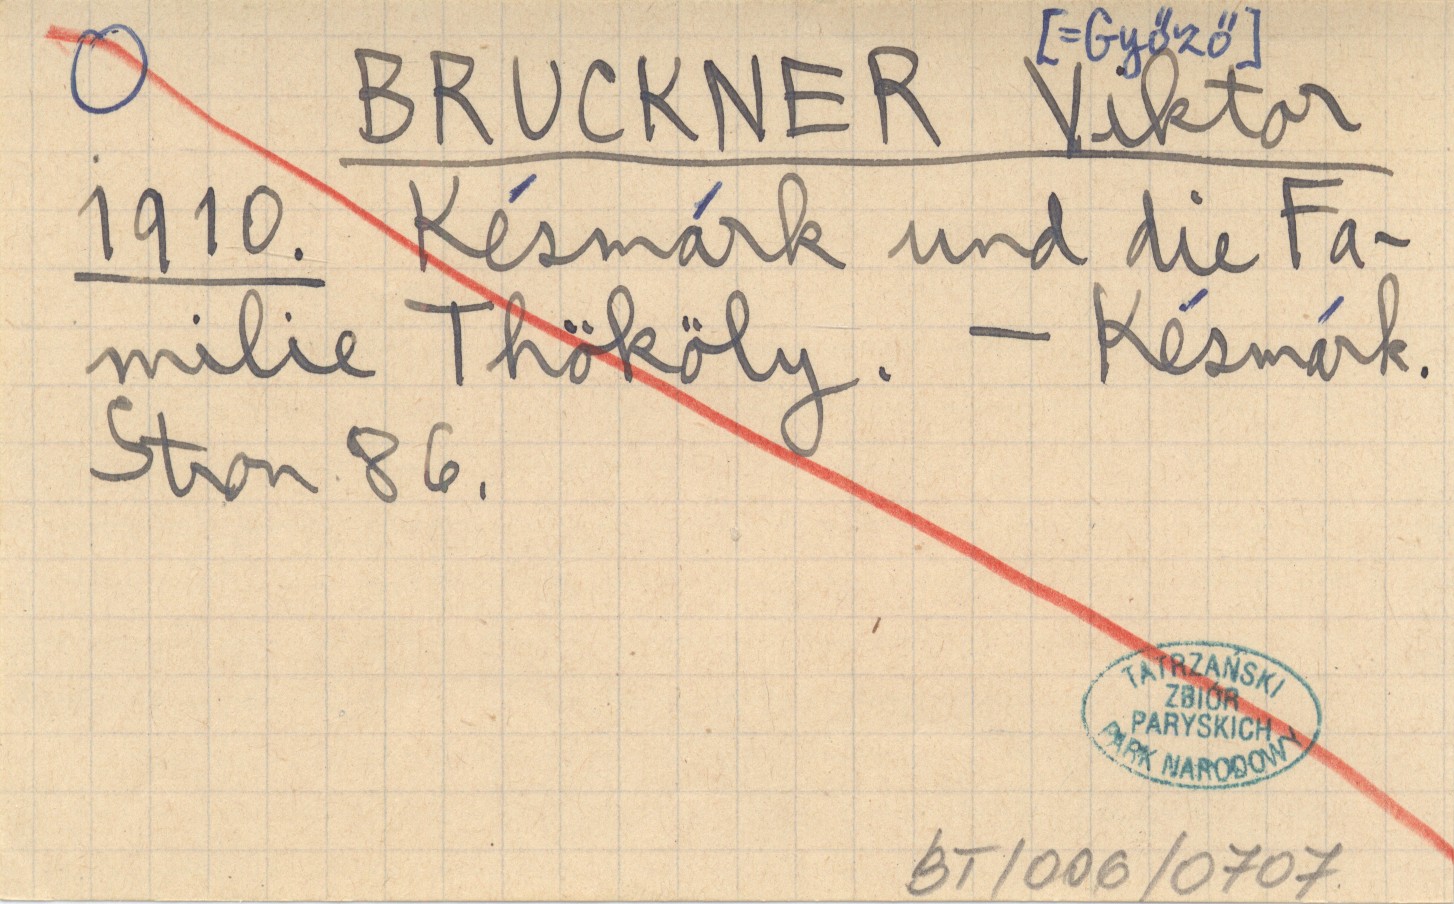 [=Győző]
BRUCKNER Viktor
1910. Késmárk und die Fa-
milie Thököly. — Késmárk.
Stron 86.
TATRZAŃSKI
ZBIÓR
PARYSKICH
PARK NARODOWY
BT/006/0707